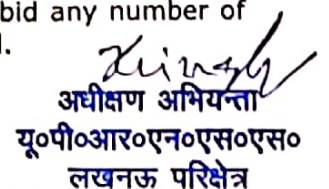 bid any number of
अधीक्षण अभियन्ता
यू०पी०आर०एन०एस०एस०
लखनऊ परिक्षेत्र